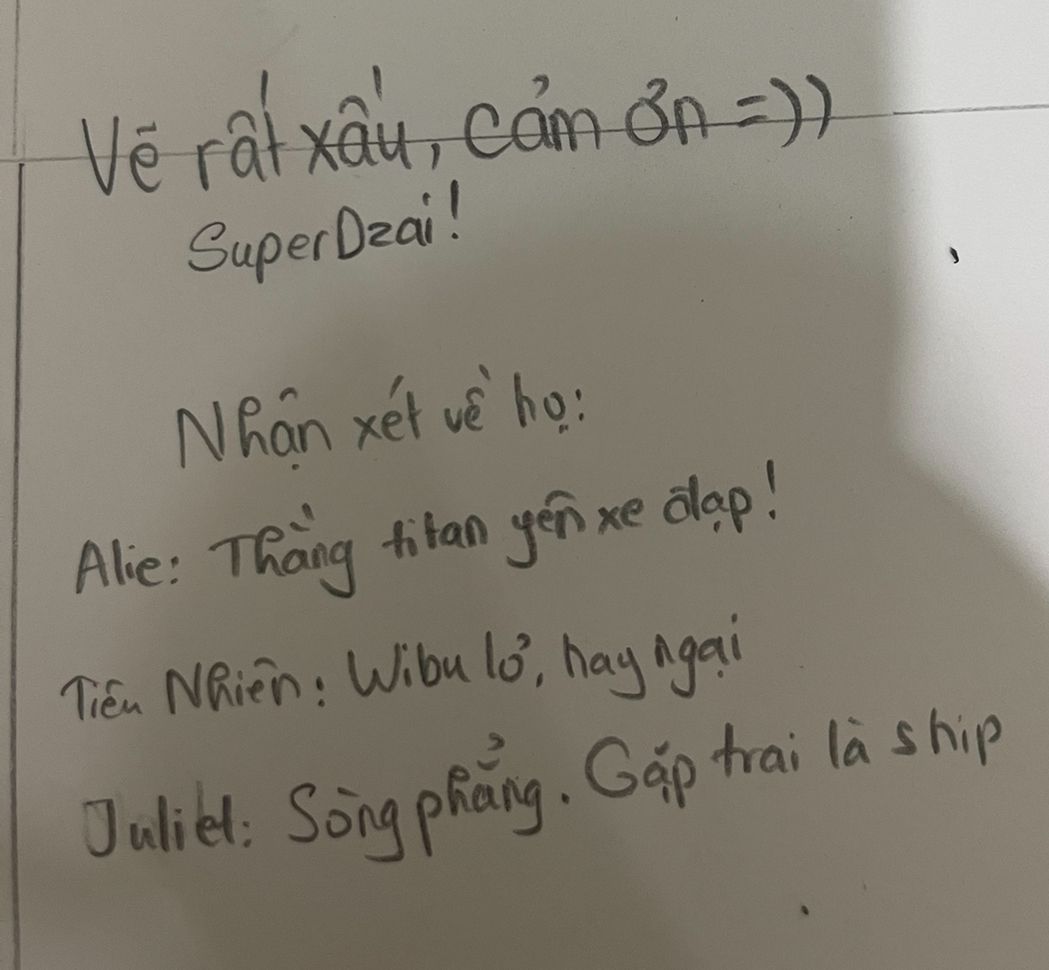 Vẽ rất xấu, cảm ơn =))
SuperDzai!
Nhận xét về họ:
Alie: Thằng titan yên xe đạp!
Tiêu Nhiên: Wibu lỏ, hay ngại
Juliet: Sòng phẳng. Gặp trai là ship